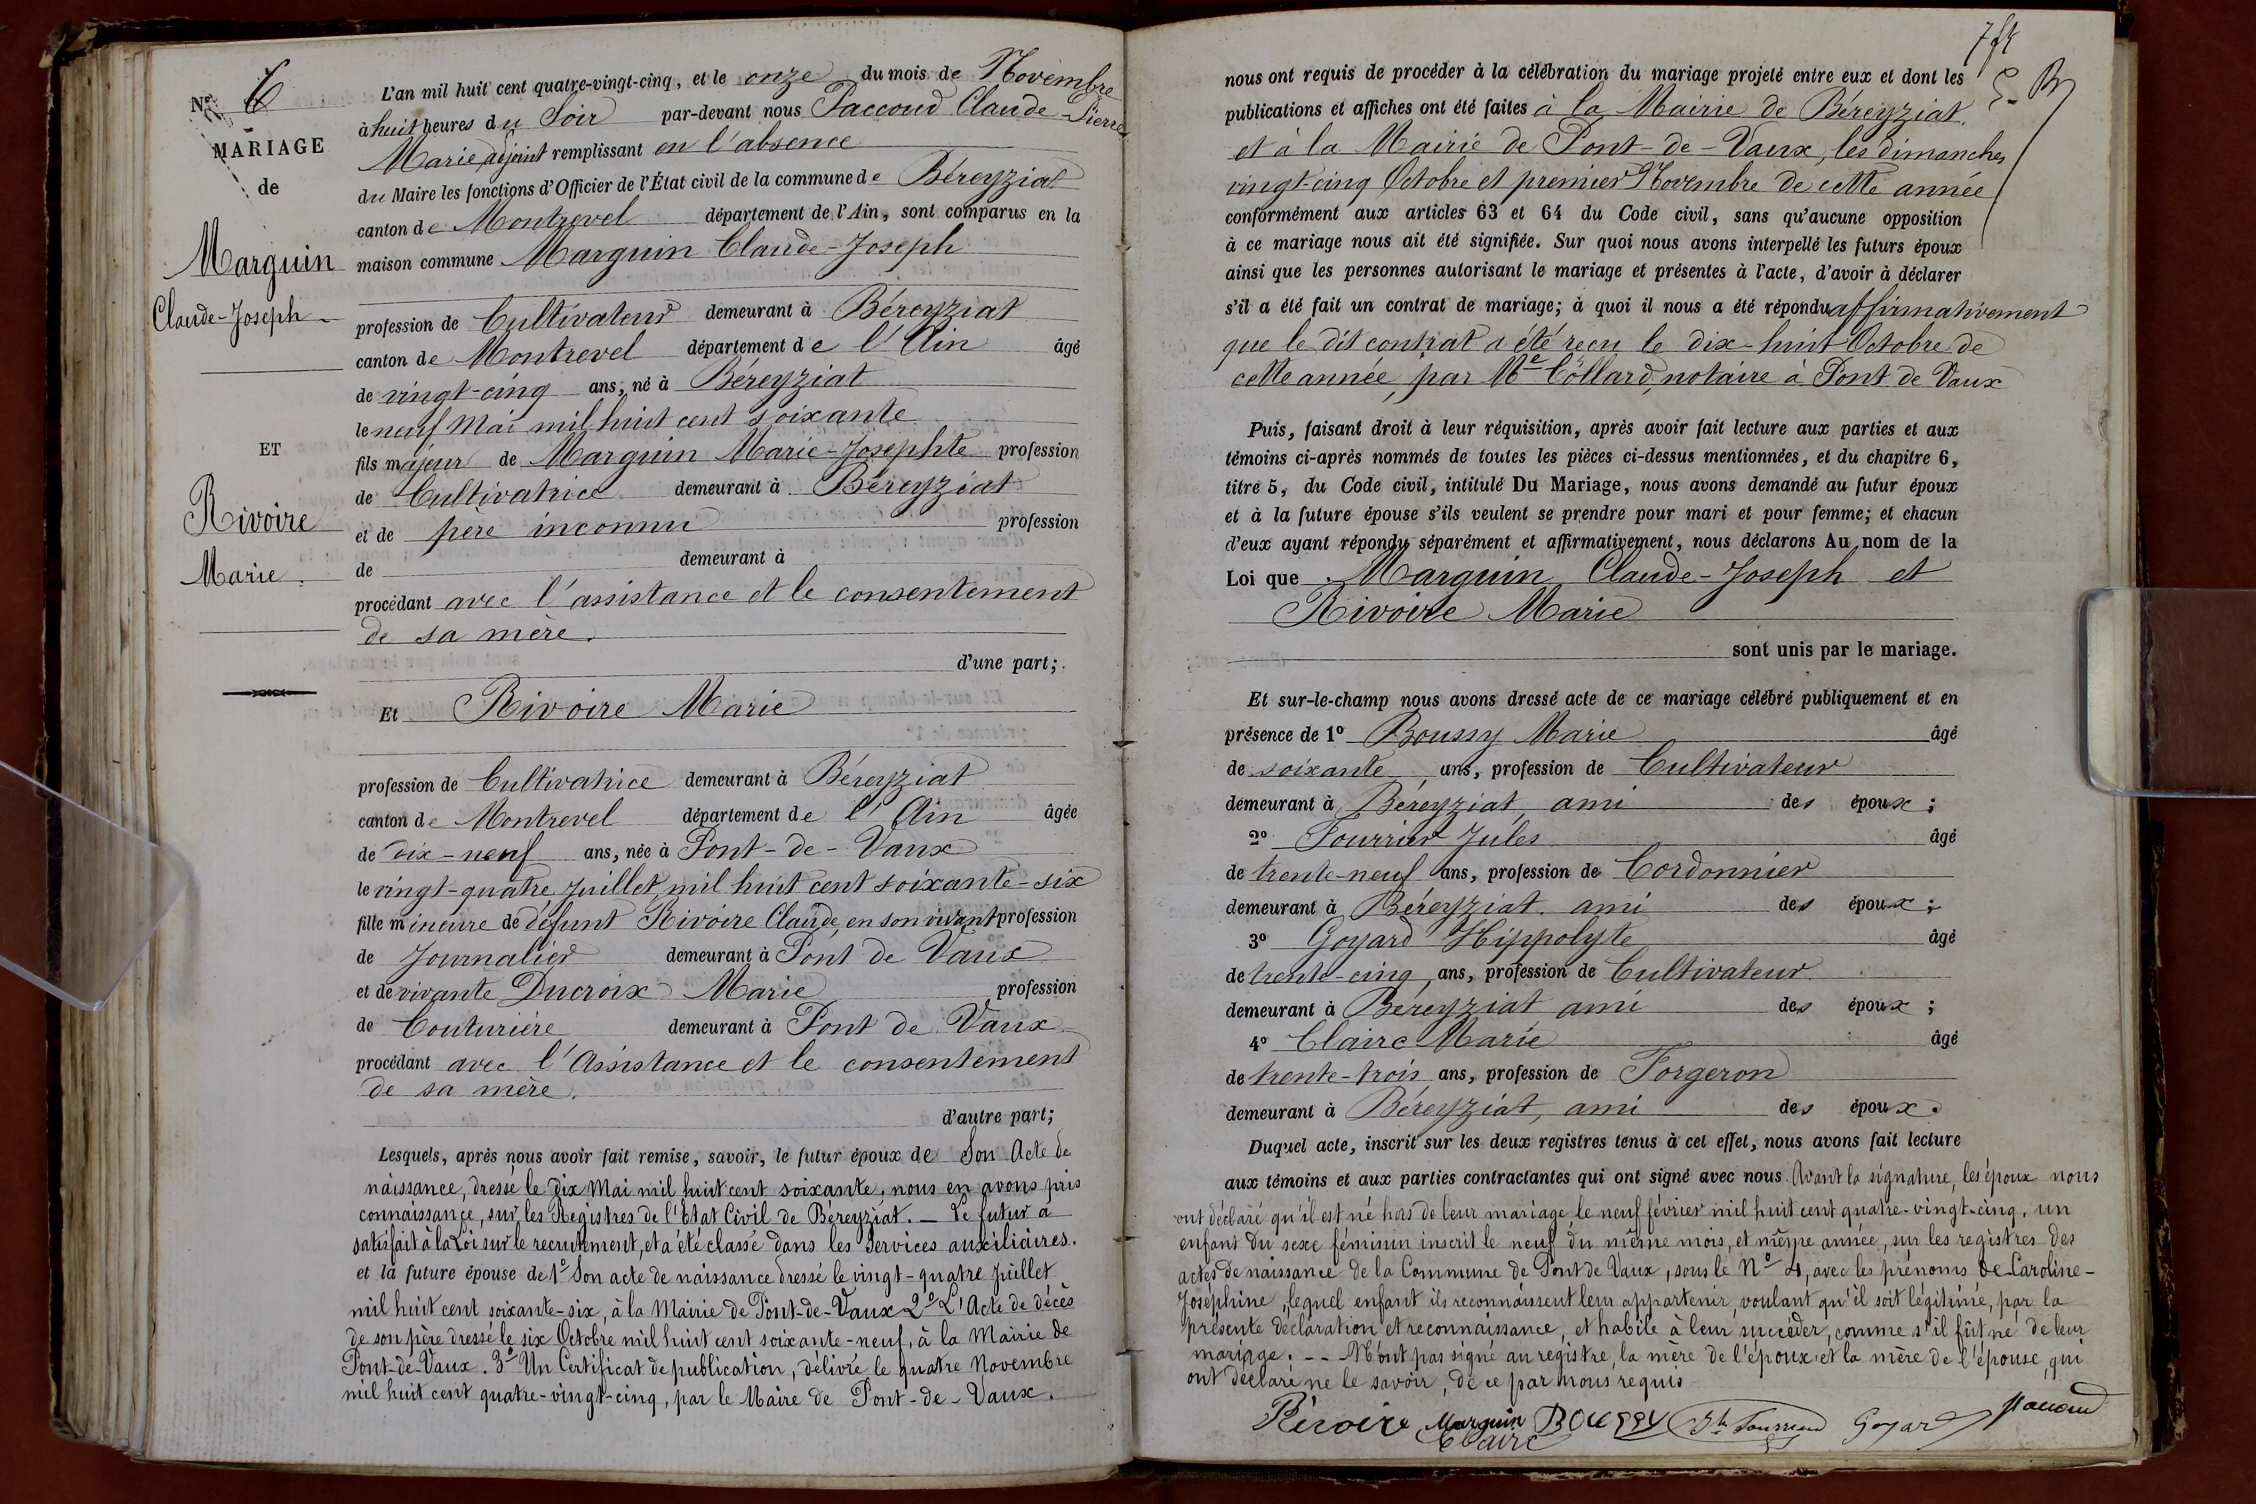 Nº 6
MARIAGE
de
Marguin
Claude-Joseph
ET
Rivoire
Marie.
L'an mil huit cent quatre-vingt-cinq, et le onze du mois de Novembre
à huit heures du Soir par-devant nous Paccoud Claude-Pierre
Marie, adjoint remplissant en l'absence
du Maire les fonctions d'Officier de l'État civil de la commune de Béreyziat
canton de Montrevel département de l'Ain, sont comparus en la
maison commune Marguin Claude-Joseph
profession de Cultivateur demeurant à Béreyziat
canton de Montrevel département de l'Ain âgé
de vingt-cinq ans, né à Béreyziat
le neuf Mai mil huit cent soixante
fils majeur de Marguin Marie-Josephte profession
de Cultivatrice demeurant à Béreyziat
et de père inconnu profession
de demeurant à
procédant avec l'assistance et le consentement
de sa mère.
d'une part;
Et Rivoire Marie
profession de Cultivatrice demeurant à Béreyziat
canton de Montrevel département de l'Ain âgée
de dix-neuf ans, née à Pont-de-Vaux
le vingt-quatre Juillet mil huit cent soixante-six
fille mineure de défunt Rivoire Claude, en son vivant profession
de Journalier demeurant à Pont de Vaux
et de vivante Ducroix Marie profession
de Couturière demeurant à Pont de Vaux
procédant avec l'Assistance et le consentement
de sa mère.
d'autre part;
Lesquels, après nous avoir fait remise, savoir, le futur époux de Son Acte de
naissance, dressé le dix Mai mil huit cent soixante, nous en avons pris
connaissance, sur les Registres de l'Etat Civil de Béreyziat. — Le futur a
satisfait à la Loi sur le recrutement, et a été classé dans les Services auxiliaires.
et la future épouse de 1º Son acte de naissance dressé le vingt-quatre Juillet
mil huit cent soixante-six, à la Mairie de Pont-de-Vaux 2º L'Acte de décès
de son père dressé le six Octobre mil huit cent soixante-neuf, à la Mairie de
Pont-de-Vaux. 3º Un Certificat de publication, délivré le quatre Novembre
mil huit cent quatre-vingt-cinq, par le Maire de Pont-de-Vaux.
nous ont requis de procéder à la célébration du mariage projeté entre eux et dont les
publications et affiches ont été faites à la Mairie de Béreyziat.
et à la Mairie de Pont-de-Vaux, les dimanches
vingt-cinq Octobre et premier Novembre de cette année
conformément aux articles 63 et 64 du Code civil, sans qu'aucune opposition
à ce mariage nous ait été signifiée. Sur quoi nous avons interpellé les futurs époux
ainsi que les personnes autorisant le mariage et présentes à l'acte, d'avoir à déclarer
s'il a été fait un contrat de mariage; à quoi il nous a été répondu affirmativement
que le dit contrat a été reçu le dix-huit Octobre de
cette année, par Me Collard, notaire à Pont de Vaux
Puis, faisant droit à leur réquisition, après avoir fait lecture aux parties et aux
témoins ci-après nommés de toutes les pièces ci-dessus mentionnées, et du chapitre 6,
titre 5, du Code civil, intitulé Du Mariage, nous avons demandé au futur époux
et à la future épouse s'ils veulent se prendre pour mari et pour femme; et chacun
d'eux ayant répondu séparément et affirmativement, nous déclarons Au nom de la
Loi que Marguin Claude-Joseph et
Rivoire Marie
sont unis par le mariage.
Et sur-le-champ nous avons dressé acte de ce mariage célébré publiquement et en
présence de 1º Boussy Marie âgé
de soixante ans, profession de Cultivateur
demeurant à Béreyziat, ami des époux;
2º Fourrier Jules âgé
de trente-neuf ans, profession de Cordonnier
demeurant à Béreyziat. ami des époux;
3º Goyard Hippolyte âgé
de trente-cinq ans, profession de Cultivateur
demeurant à Béreyziat ami des époux;
4º Claire Marie âgé
de trente-trois ans, profession de Forgeron
demeurant à Béreyziat, ami des époux.
Duquel acte, inscrit sur les deux registres tenus à cet effet, nous avons fait lecture
aux témoins et aux parties contractantes qui ont signé avec nous. Avant la signature, les époux nous
ont déclaré qu'il est né hors de leur mariage le neuf février mil huit cent quatre-vingt-cinq, un
enfant du sexe féminin inscrit le neuf du même mois, et même année, sur les registres des
actes de naissance de la Commune de Pont de Vaux, sous le Nº 4, avec les prénoms de Caroline-
Joséphine, lequel enfant ils reconnaissent leur appartenir, voulant qu'il soit légitimé, par la
présente déclaration et reconnaissance, et habile à leur succéder, comme s'il fût né de leur
mariage. -- N'ont pas signé au registre, la mère de l'époux et la mère de l'épouse, qui
ont déclaré ne le savoir, de ce par nous requis
Rivoire Marguin BOUSSY Goyard Paccoud
Claire